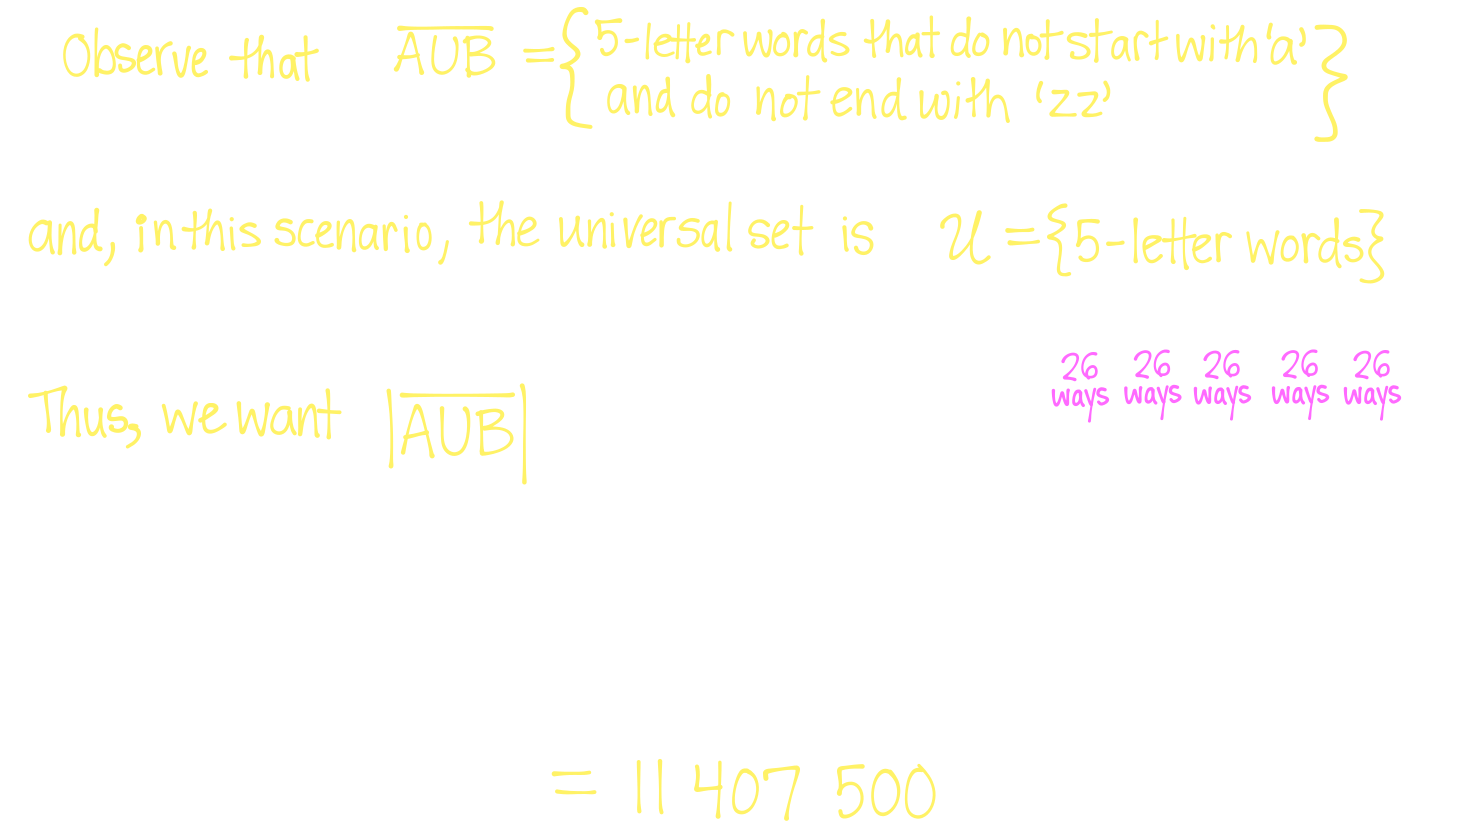 Observe that A∪B = {5-letter words that do not start with 'a'
and do not end with 'zz'}
and, in this scenario, the universal set is U = {5-letter words}
26 ways 26 ways 26 ways 26 ways 26 ways
Thus, we want |A∪B|
= 11 407 500